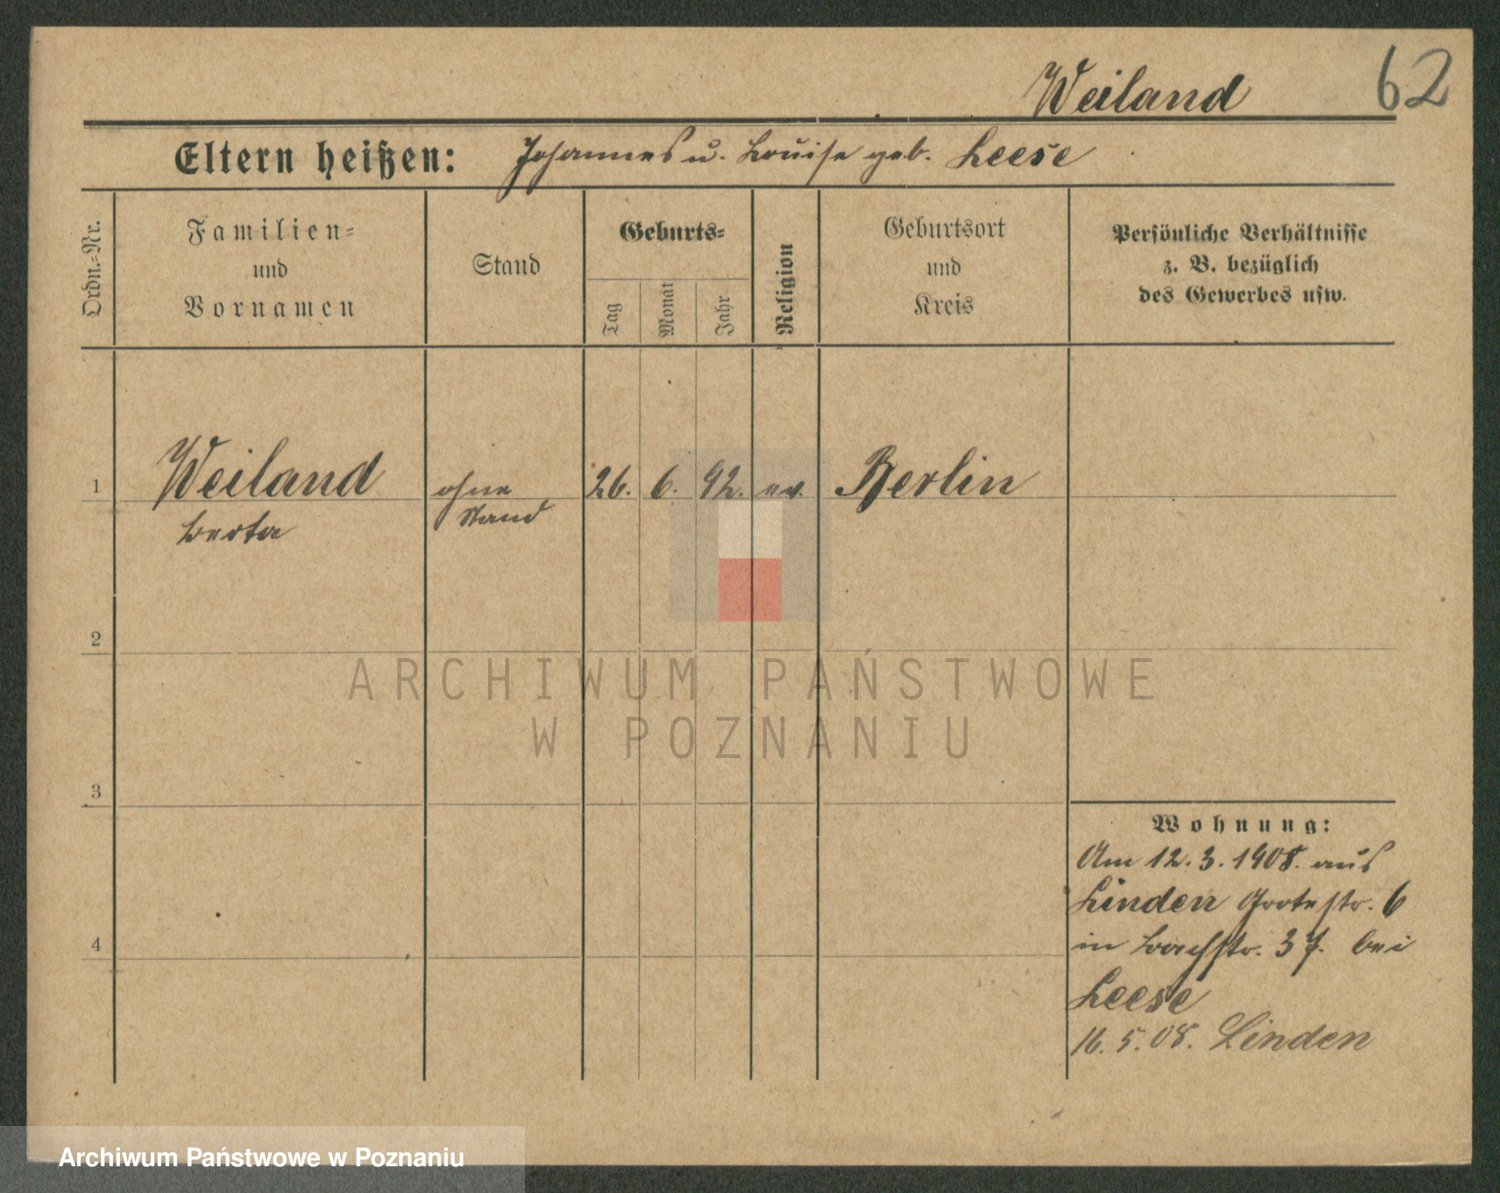 62
Weiland
Eltern heißen: Johannes u. Louise geb. Leese
Ordn.=Nr.
Familien=
und
Vornamen
Stand
Geburts=
Tag
Monat
Jahr
Religion
Geburtsort
und
Kreis
Persönliche Verhältnisse
z. B. bezüglich
des Gewerbes usw.
1
Weiland
Berta
ohne
Stand
26. 6. 92. ev. Berlin
2
3
4
Wohnung:
Am 12. 3. 1908. aus
Linden Grotestr. 6
in Bachstr. 37. bei
Leese
16. 5. 08. Linden
ARCHIWUM PAŃSTWOWE
W POZNANIU
Archiwum Państwowe w Poznaniu